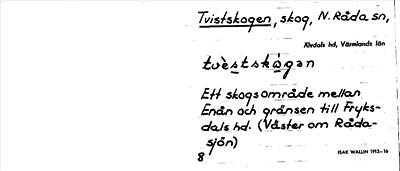 Tvistskogen, skog, N. Råda sn,
Älvdals hd, Värmlands län
tvèstskógan
Ett skogsområde mellan
Enån och gränsen till Fryks-
dals hd. (Väster om Råda-
sjön)
8
ISAK WALLIN 1913–16